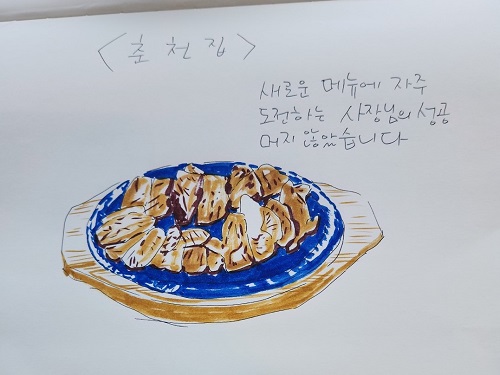 <춘천집>
새로운 메뉴에 자주
도전하는 사장님의 성공
머지 않았습니다